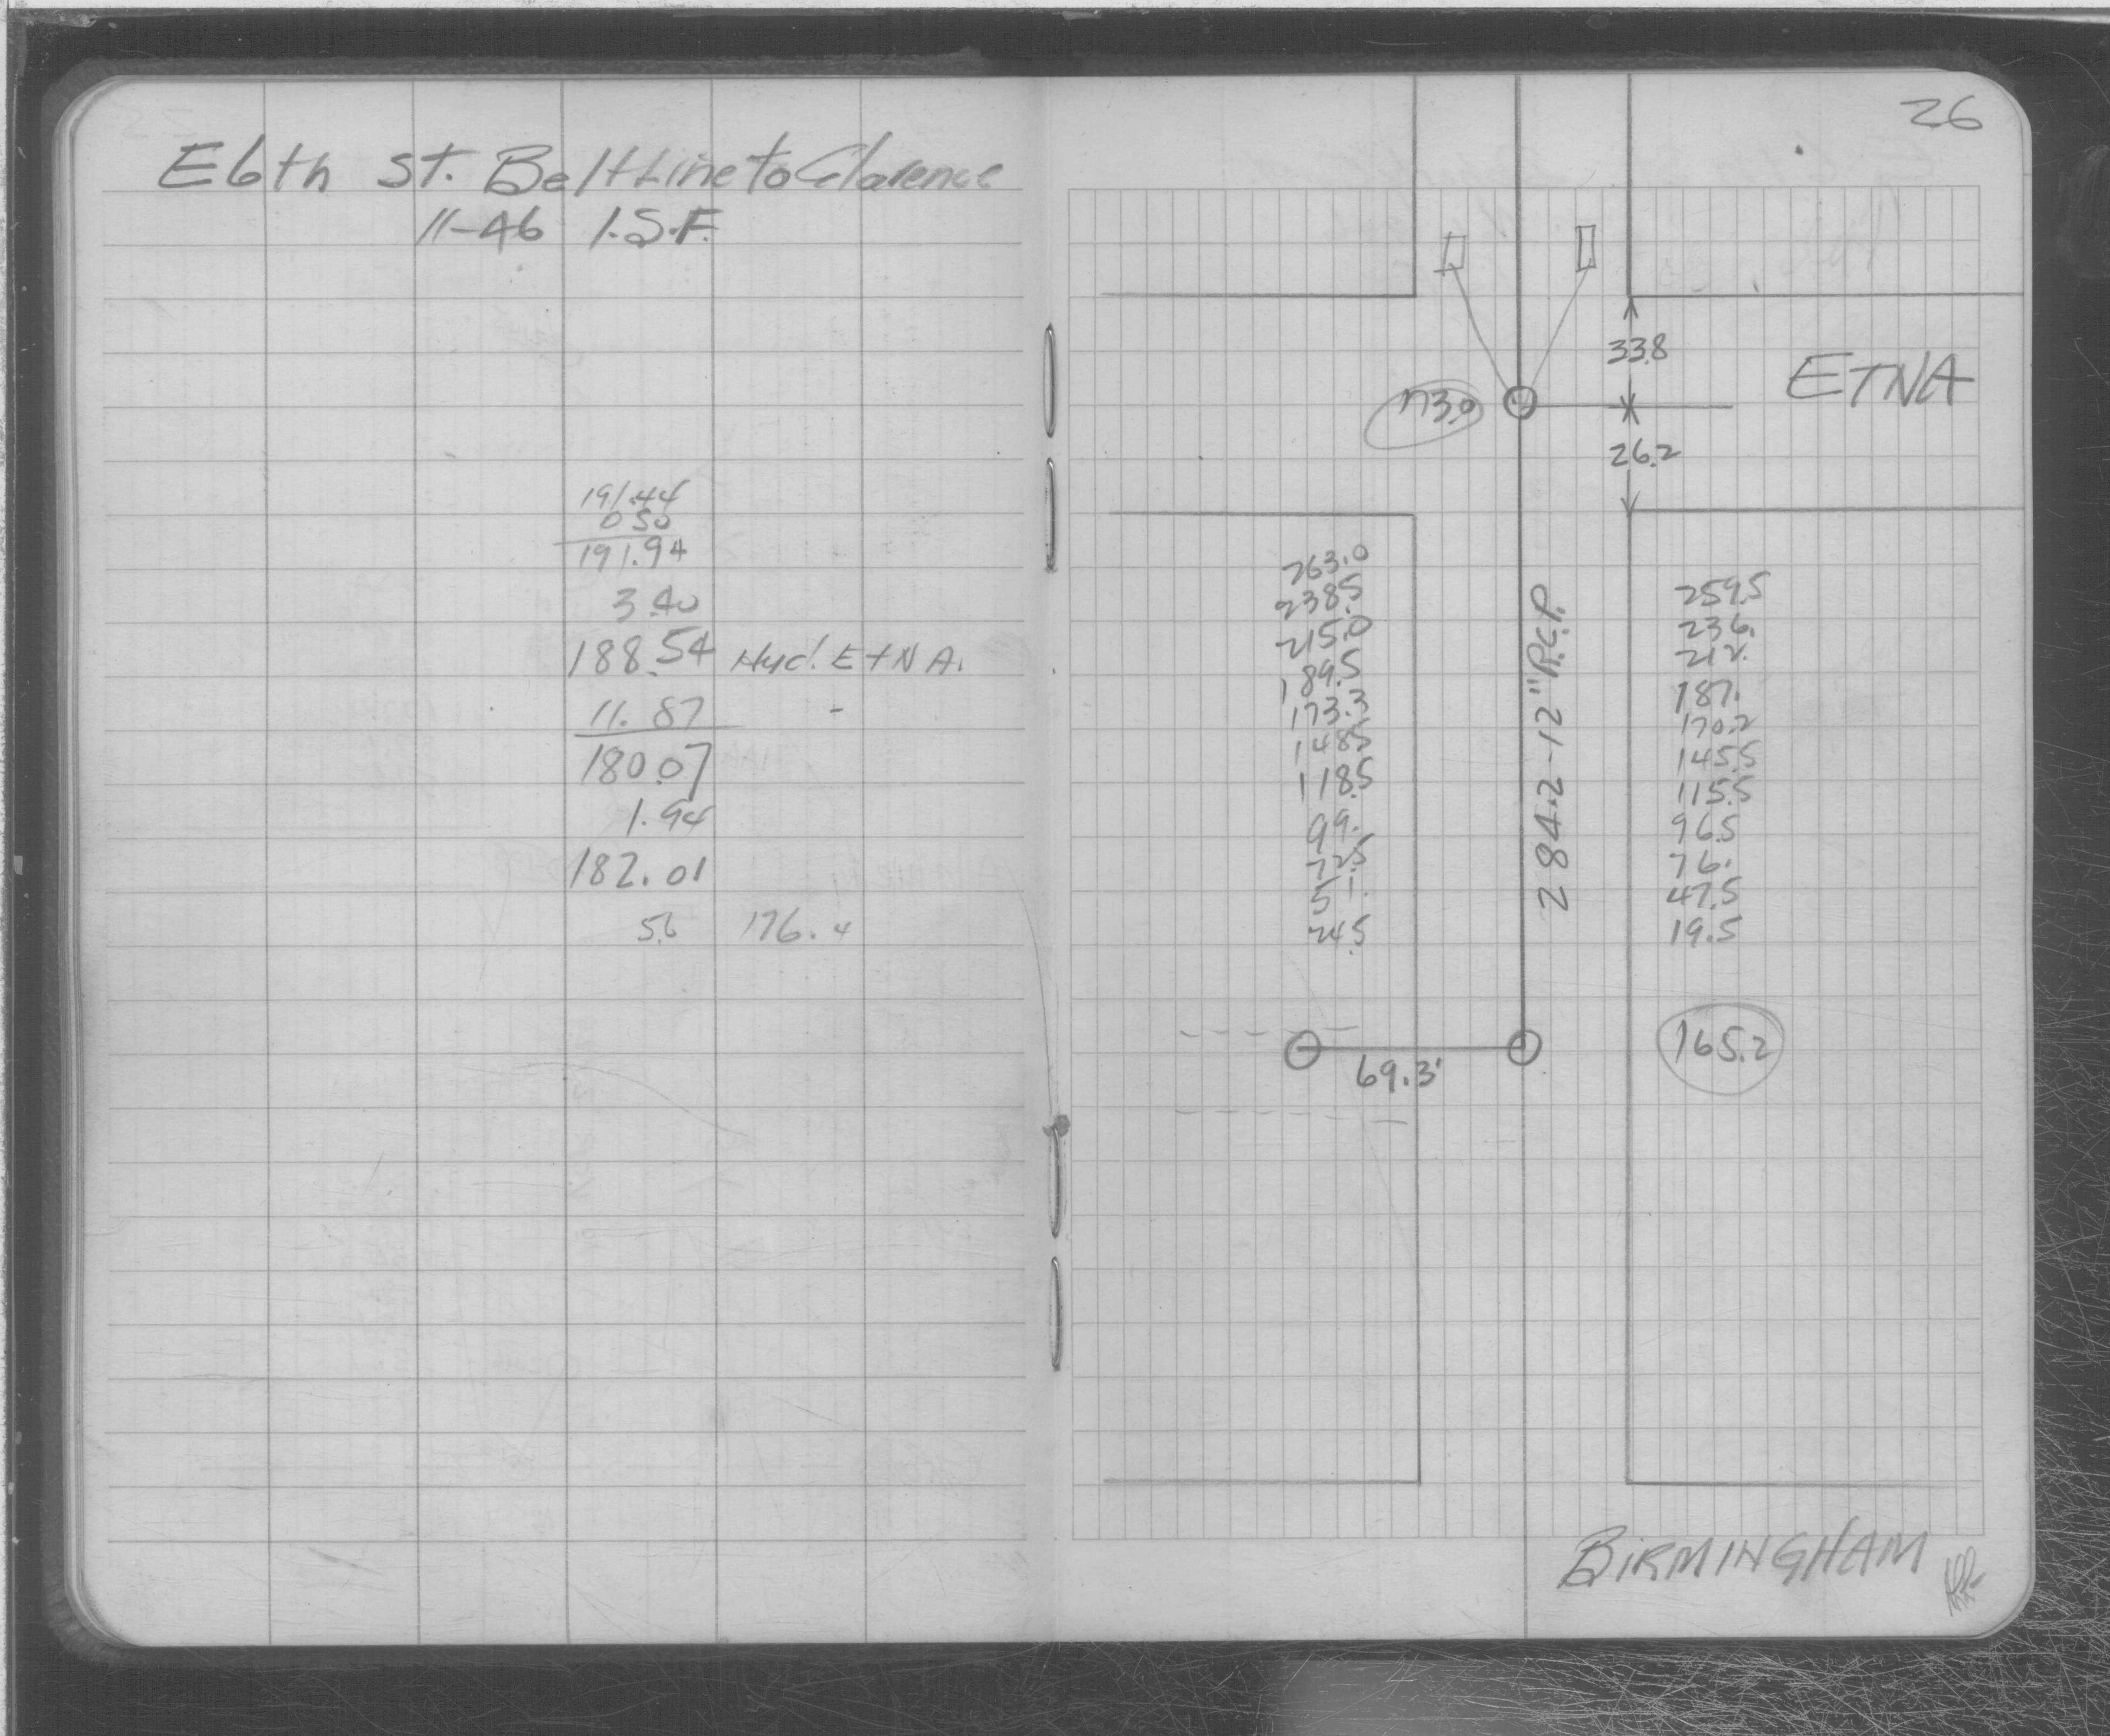 E 6th St. Belt Line to Clarence
11-46 I.S.F.
191.44
0 50
191.94
3.40
188.54 Hyd. EtNA.
11.87 -
180.07
1.94
182.01
5.6 176.4
26
33.8
ETNA
173.0
26.2
263.0
238.5
215.0
189.5
173.3
148.5
118.5
99.
72.5
51.
24.5
284.2-12" R.C.P.
259.5
236.
212.
187.
170.2
145.5
115.5
96.5
76.
47.5
19.5
165.2
69.3'
BIRMINGHAM